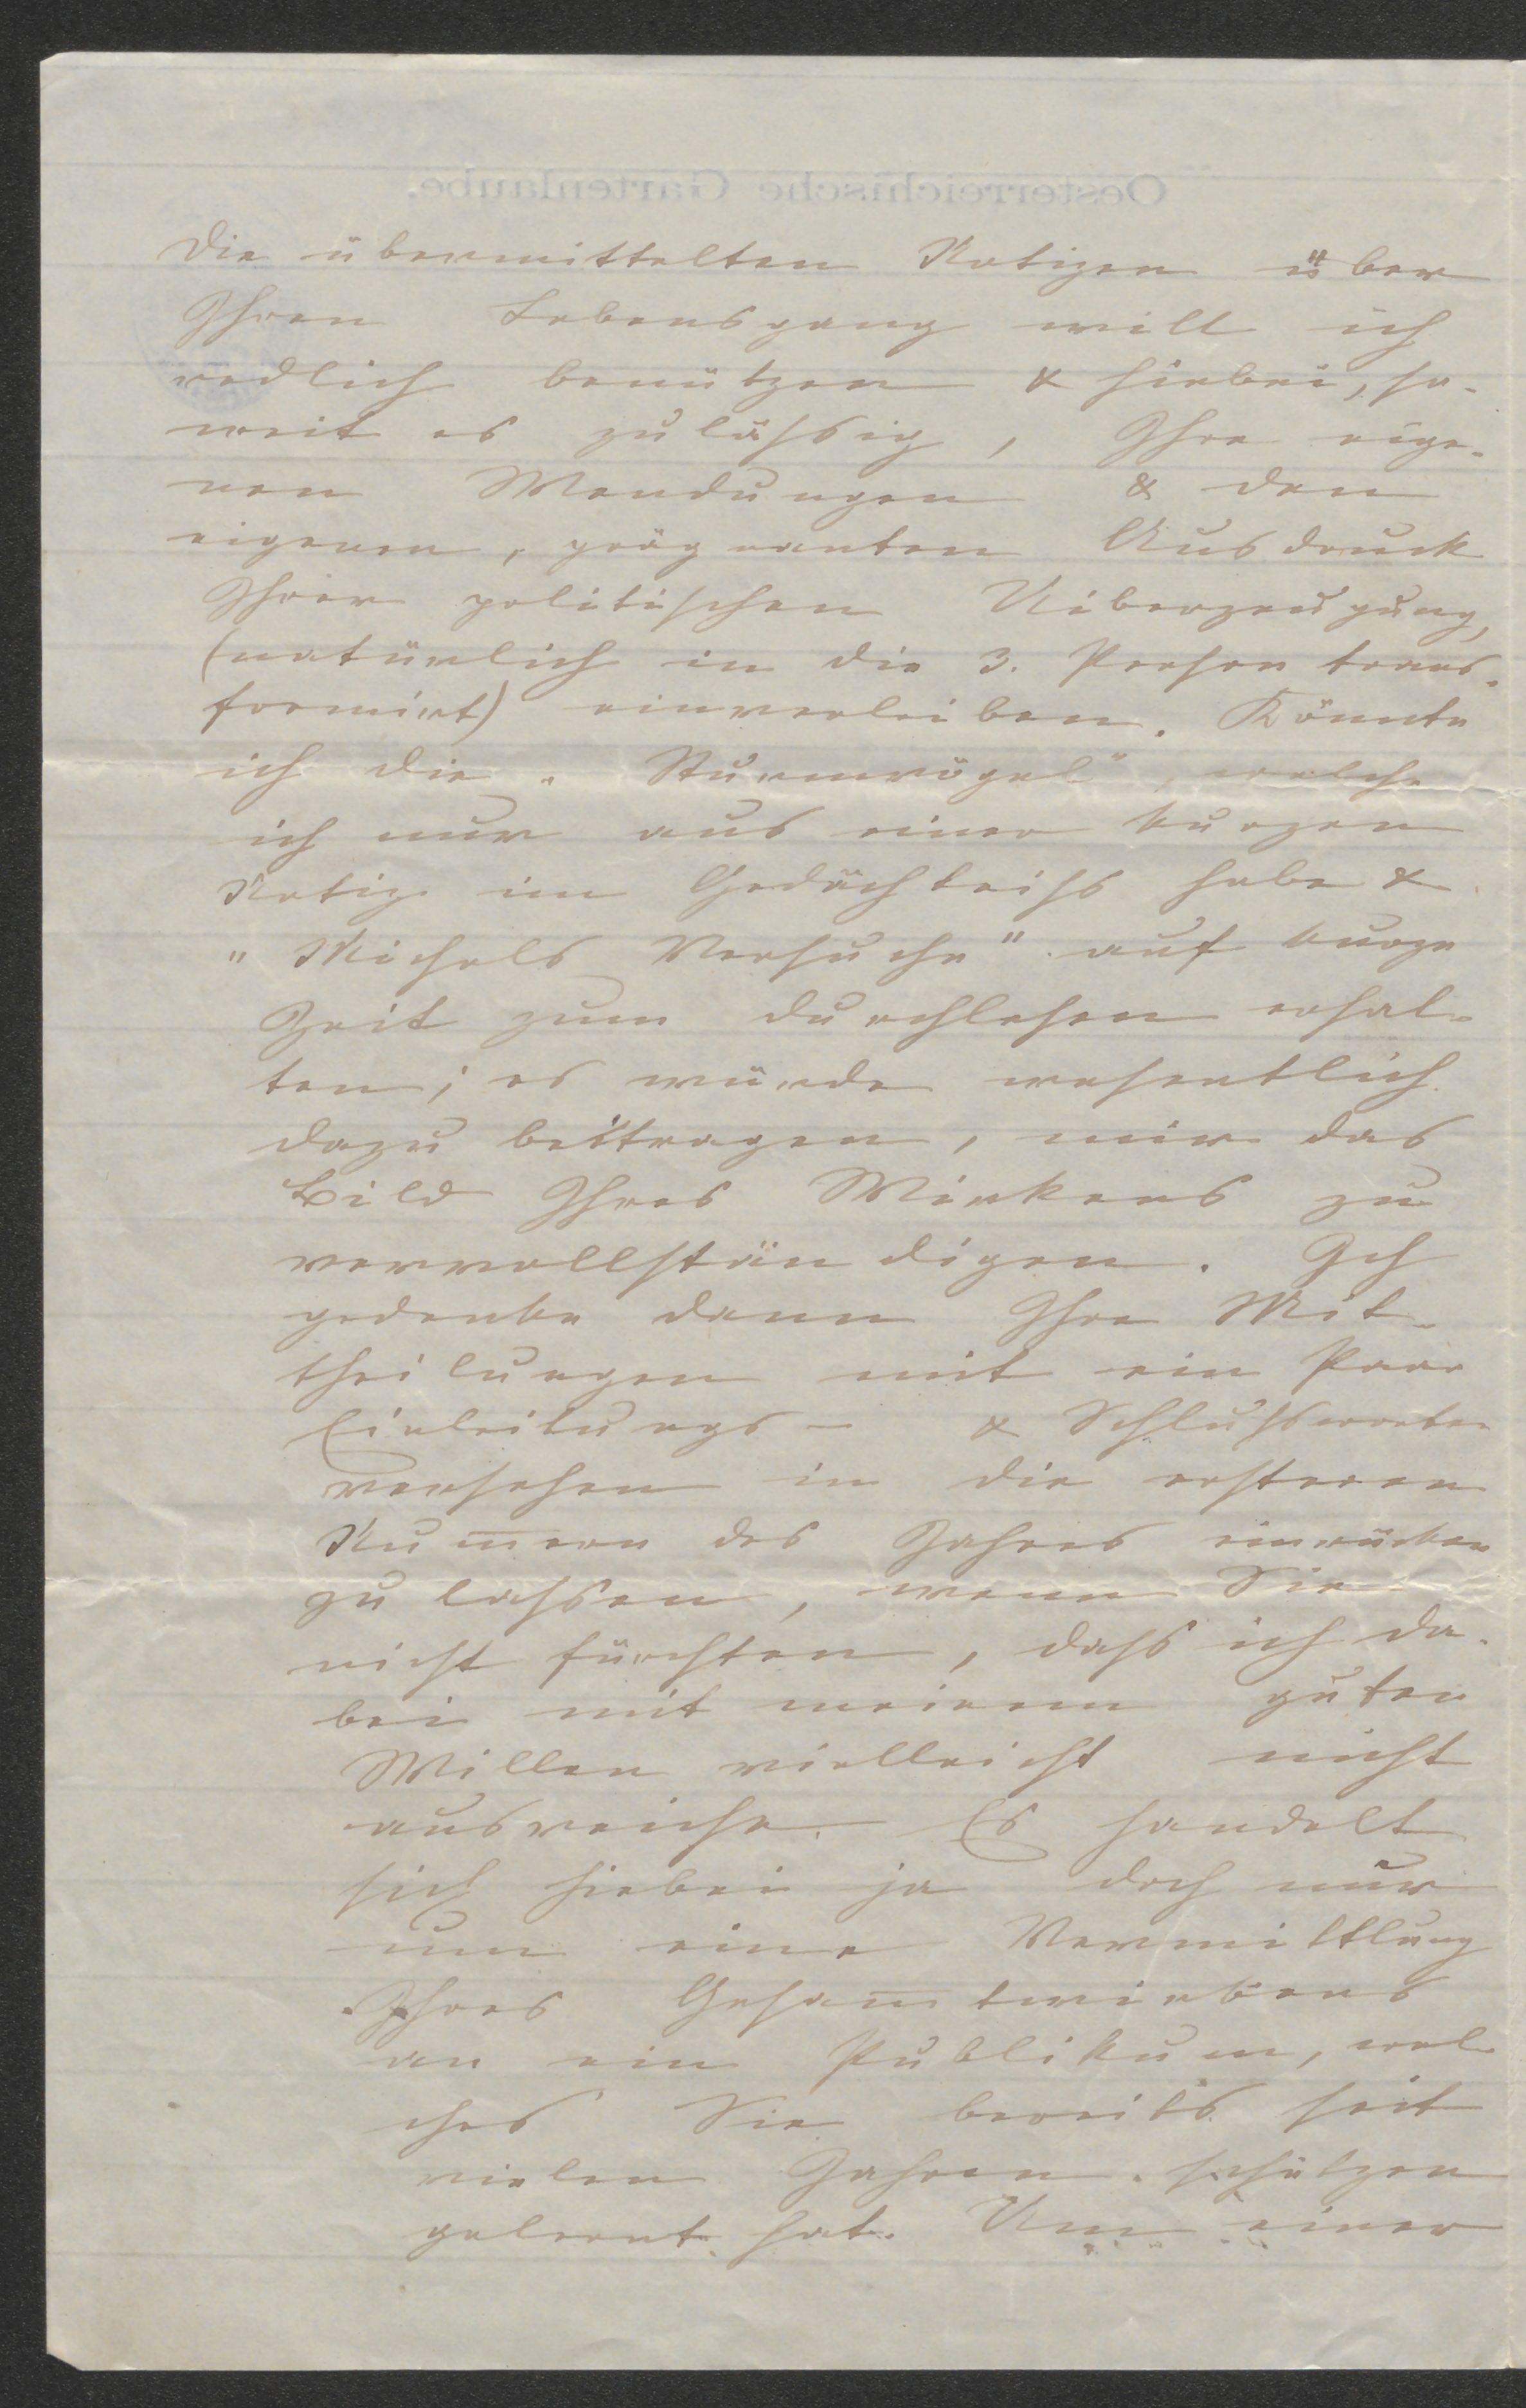 Die übermittelten Notizen über
Ihren Lebensgang will ich
redlich benützen & hiebei, so-
weit es zuläßsig, Ihre eige-
nen Wendungen & den
eigenen, prägnanten Ausdruck
Ihrer politischen Uiberzeugung,
(natürlich in die 3. Person trans-
formirt) einverleiben. Könnte
ich die „Sturmvögel", welche
ich nur aus einer kurzen
Notiz im Gedächtniß habe &
"Michels Versuche" auf kurze
Zeit zum durchlesen erhal-
ten; es würde wesentlich
dazu beitragen, mir das
Bild Ihres Wirkens zu
vervollständigen. Ich
gedenke dann Ihre Mit-
theilungen mit ein Paar
Einleitungs- & Schlußworten
versehen in die ersteren
Num̅ern des Jahres einrücken
zu lassen, wenn Sie
nicht fürchten, daß ich da-
bei mit meinem guten
Willen vielleicht nicht
ausreiche. Es handelt
sich hiebei ja doch nur
um eine Vermittlung
Ihres Gesam̅twirkens
an ein Publikum, wel-
ches Sie bereits seit
vielen Jahren schätzen
gelernt hat. Um einer
Oesterreichische Gartenlaube.